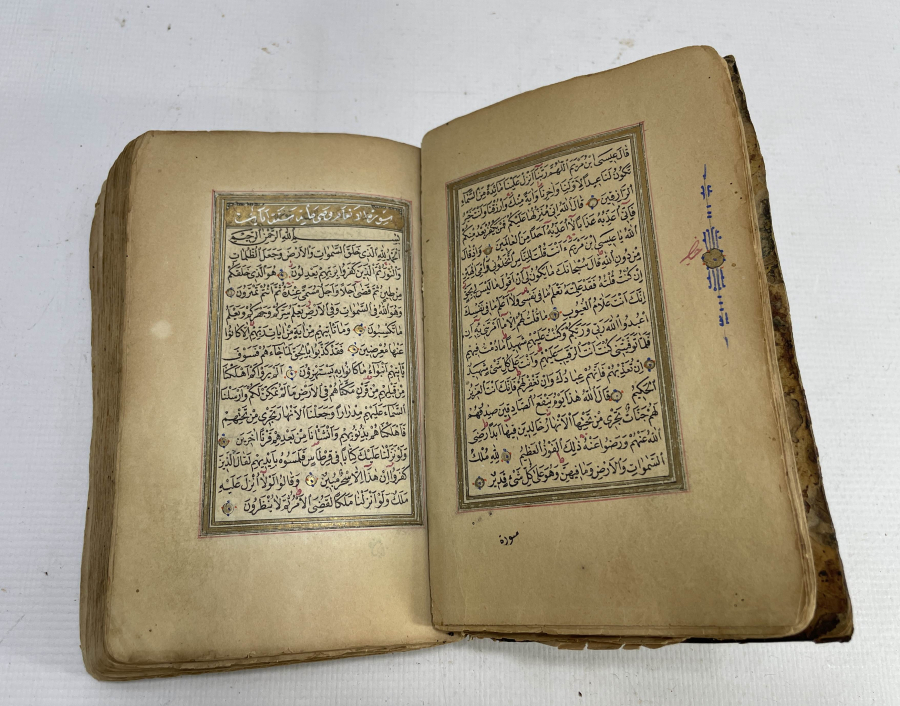 قَالَ عِيسَى ابْنُ مَرْيَمَ اللّٰهُمَّ رَبَّنَا اَنْزِلْ عَلَيْنَا مَائِدَةً مِنَ السَّمَاءِ
تَكُونُ لَنَا عِيدًا لِاَوَّلِنَا وَاٰخِرِنَا وَاٰيَةً مِنْكَ وَارْزُقْنَا وَاَنْتَ خَيْرُ
الرَّازِقِينَ قَالَ اللّٰهُ اِنِّي مُنَزِّلُهَا عَلَيْكُمْ فَمَنْ يَكْفُرْ بَعْدُ مِنْكُمْ
فَاِنِّي اُعَذِّبُهُ عَذَابًا لَا اُعَذِّبُهُ اَحَدًا مِنَ الْعَالَمِينَ وَاِذْ قَالَ
اللّٰهُ يَا عِيسَى ابْنَ مَرْيَمَ ءَاَنْتَ قُلْتَ لِلنَّاسِ اتَّخِذُونِي وَاُمِّيَ اِلٰهَيْنِ
مِنْ دُونِ اللّٰهِ قَالَ سُبْحَانَكَ مَا يَكُونُ لِي اَنْ اَقُولَ مَا لَيْسَ لِي بِحَقٍّ
اِنْ كُنْتُ قُلْتُهُ فَقَدْ عَلِمْتَهُ تَعْلَمُ مَا فِي نَفْسِي وَلَا اَعْلَمُ مَا فِي نَفْسِكَ
اِنَّكَ اَنْتَ عَلَّامُ الْغُيُوبِ مَا قُلْتُ لَهُمْ اِلَّا مَا اَمَرْتَنِي بِهِ اَنِ
اعْبُدُوا اللّٰهَ رَبِّي وَرَبَّكُمْ وَكُنْتُ عَلَيْهِمْ شَهِيدًا مَا دُمْتُ فِيهِمْ
فَلَمَّا تَوَفَّيْتَنِي كُنْتَ اَنْتَ الرَّقِيبَ عَلَيْهِمْ وَاَنْتَ عَلٰى كُلِّ شَيْءٍ شَهِيدٌ
اِنْ تُعَذِّبْهُمْ فَاِنَّهُمْ عِبَادُكَ وَاِنْ تَغْفِرْ لَهُمْ فَاِنَّكَ اَنْتَ الْعَزِيزُ
الْحَكِيمُ قَالَ اللّٰهُ هٰذَا يَوْمُ يَنْفَعُ الصَّادِقِينَ صِدْقُهُمْ
لَهُمْ جَنَّاتٌ تَجْرِي مِنْ تَحْتِهَا الْاَنْهَارُ خَالِدِينَ فِيهَا اَبَدًا رَضِيَ
اللّٰهُ عَنْهُمْ وَرَضُوا عَنْهُ ذٰلِكَ الْفَوْزُ الْعَظِيمُ لِلّٰهِ مُلْكُ
السَّمٰوَاتِ وَالْاَرْضِ وَمَا فِيهِنَّ وَهُوَ عَلٰى كُلِّ شَيْءٍ قَدِيرٌ
سورة
سورة الانعام وهي مائة
بِسْمِ اللّٰهِ الرَّحْمٰنِ الرَّحِيمِ
اَلْحَمْدُ لِلّٰهِ الَّذِي خَلَقَ السَّمٰوَاتِ وَالْاَرْضَ وَجَعَلَ الظُّلُمَاتِ
وَالنُّورَ ثُمَّ الَّذِينَ كَفَرُوا بِرَبِّهِمْ يَعْدِلُونَ هُوَ الَّذِي خَلَقَكُمْ
مِنْ طِينٍ ثُمَّ قَضٰى اَجَلًا وَاَجَلٌ مُسَمًّى عِنْدَهُ ثُمَّ اَنْتُمْ تَمْتَرُونَ
وَهُوَ اللّٰهُ فِي السَّمٰوَاتِ وَفِي الْاَرْضِ يَعْلَمُ سِرَّكُمْ وَجَهْرَكُمْ وَيَعْلَمُ
مَا تَكْسِبُونَ وَمَا تَأْتِيهِمْ مِنْ اٰيَةٍ مِنْ اٰيَاتِ رَبِّهِمْ اِلَّا كَانُوا
عَنْهَا مُعْرِضِينَ فَقَدْ كَذَّبُوا بِالْحَقِّ لَمَّا جَاءَهُمْ فَسَوْفَ
يَأْتِيهِمْ اَنْبٰؤُا مَا كَانُوا بِهِ يَسْتَهْزِؤُنَ اَلَمْ يَرَوْا كَمْ اَهْلَكْنَا
مِنْ قَبْلِهِمْ مِنْ قَرْنٍ مَكَّنَّاهُمْ فِي الْاَرْضِ مَا لَمْ نُمَكِّنْ لَكُمْ وَاَرْسَلْنَا
السَّمَاءَ عَلَيْهِمْ مِدْرَارًا وَجَعَلْنَا الْاَنْهَارَ تَجْرِي مِنْ تَحْتِهِمْ
فَاَهْلَكْنَاهُمْ بِذُنُوبِهِمْ وَاَنْشَأْنَا مِنْ بَعْدِهِمْ قَرْنًا اٰخَرِينَ
وَلَوْ نَزَّلْنَا عَلَيْكَ كِتَابًا فِي قِرْطَاسٍ فَلَمَسُوهُ بِاَيْدِيهِمْ لَقَالَ الَّذِينَ
كَفَرُوا اِنْ هٰذَا اِلَّا سِحْرٌ مُبِينٌ وَقَالُوا لَوْلَا اُنْزِلَ عَلَيْهِ
مَلَكٌ وَلَوْ اَنْزَلْنَا مَلَكًا لَقُضِيَ الْاَمْرُ ثُمَّ لَا يُنْظَرُونَ